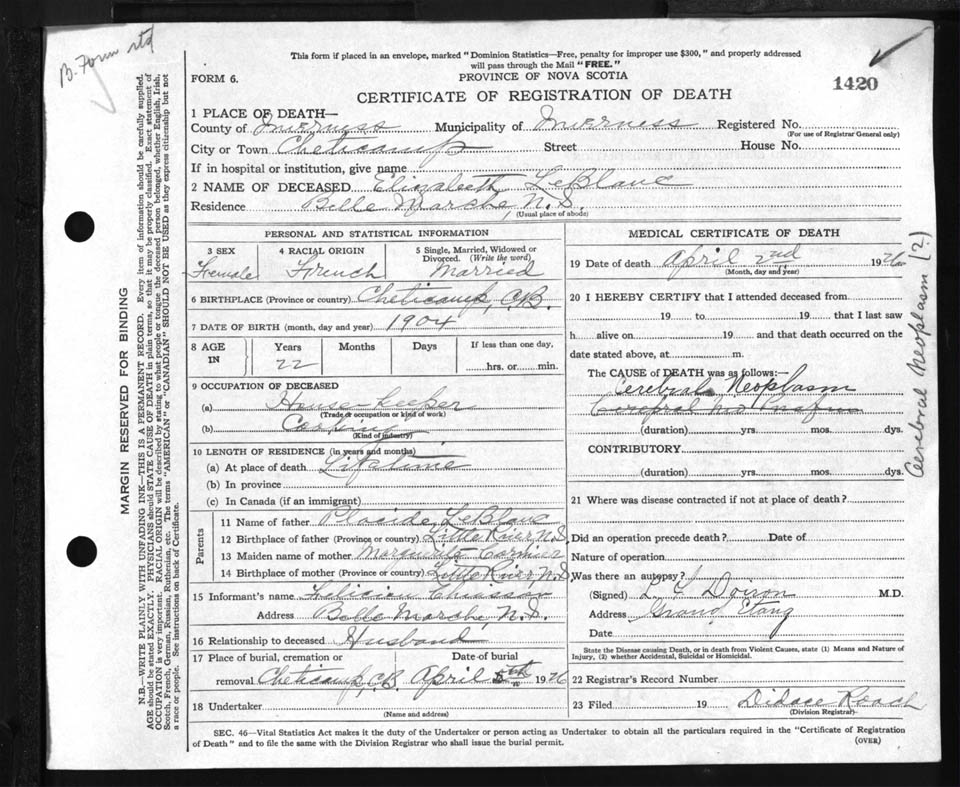 B. Form rtd
This form if placed in an envelope, marked "Dominion Statistics—Free, penalty for improper use $300," and properly addressed
will pass through the Mail "FREE."
FORM 6.
PROVINCE OF NOVA SCOTIA
1420
CERTIFICATE OF REGISTRATION OF DEATH
1 PLACE OF DEATH—
County of Inverness Municipality of Inverness Registered No.
(For use of Registrar General only)
City or Town Cheticamp Street House No.
If in hospital or institution, give name
2 NAME OF DECEASED Elizabeth LeBlanc
Residence Belle Marche, N.S.
(Usual place of abode)
PERSONAL AND STATISTICAL INFORMATION
3 SEX 4 RACIAL ORIGIN 5 Single, Married, Widowed or
Divorced. (Write the word)
Female French Married
6 BIRTHPLACE (Province or country) Cheticamp, C.B.
7 DATE OF BIRTH (month, day and year) 1904
8 AGE IN Years Months Days If less than one day,
22 hrs. or min.
9 OCCUPATION OF DECEASED
(a) House-keeper
(Trade, occupation or kind of work)
(b)
(Kind of industry)
10 LENGTH OF RESIDENCE (in years and months)
(a) At place of death Lifetime
(b) In province
(c) In Canada (if an immigrant)
Parents
11 Name of father Placide LeBlanc
12 Birthplace of father (Province or country) Little River N.S.
13 Maiden name of mother Marguerite Cormier
14 Birthplace of mother (Province or country) Little River N.S.
15 Informant's name Chiasson
Address Belle Marche, N.S.
16 Relationship to deceased Husband
17 Place of burial, cremation or Date of burial
removal Cheticamp, C.B. April 5th 1926
18 Undertaker
(Name and address)
MEDICAL CERTIFICATE OF DEATH
19 Date of death April 2nd 1926
(Month, day and year)
20 I HEREBY CERTIFY that I attended deceased from
19 to 19 that I last saw
h alive on 19 and that death occurred on the
date stated above, at m.
The CAUSE OF DEATH was as follows:—
Cerebral Neoplasm
(duration) yrs. mos. dys.
CONTRIBUTORY
(duration) yrs. mos. dys.
21 Where was disease contracted if not at place of death?
Did an operation precede death? Date of
Nature of operation
Was there an autopsy?
(Signed) Doiron M.D.
Address Grand Etang
Date
State the Disease causing Death, or in death from Violent Causes, state (1) Means and Nature of
Injury, (2) whether Accidental, Suicidal or Homicidal.
22 Registrar's Record Number
23 Filed 19 Didace Roach
(Division Registrar)
SEC. 46—Vital Statistics Act makes it the duty of the Undertaker or person acting as Undertaker to obtain all the particulars required in the "Certificate of Registration
of Death" and to file the same with the Division Registrar who shall issue the burial permit. (OVER)
Cerebral Neoplasm (?)
MARGIN RESERVED FOR BINDING
N.B.—WRITE PLAINLY WITH UNFADING INK—THIS IS A PERMANENT RECORD. Every item of information should be carefully supplied.
AGE should be stated EXACTLY. PHYSICIANS should STATE CAUSE OF DEATH in plain terms, so that it may be properly classified. Exact statement of
OCCUPATION is very important. RACIAL ORIGIN will be described by stating to what people or tongue the deceased person belonged, whether English, Irish,
Scotch, French, German, Russian, Ruthenian, etc. The terms "AMERICAN" or "CANADIAN" SHOULD NOT BE USED as they express citizenship but not
a race or people. See instructions on back of Certificate.